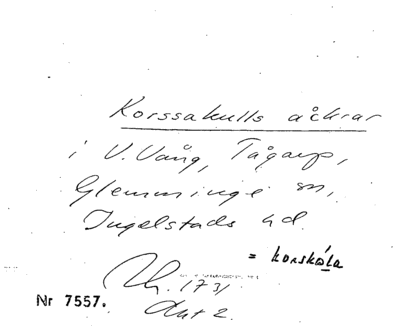 Korssakulls åkrar
i V. Vång, Tågarp,
Glemminge sn,
Ingelstads hd.
= korskåla
Lh. 1731
Akt 2.
Nr 7557.